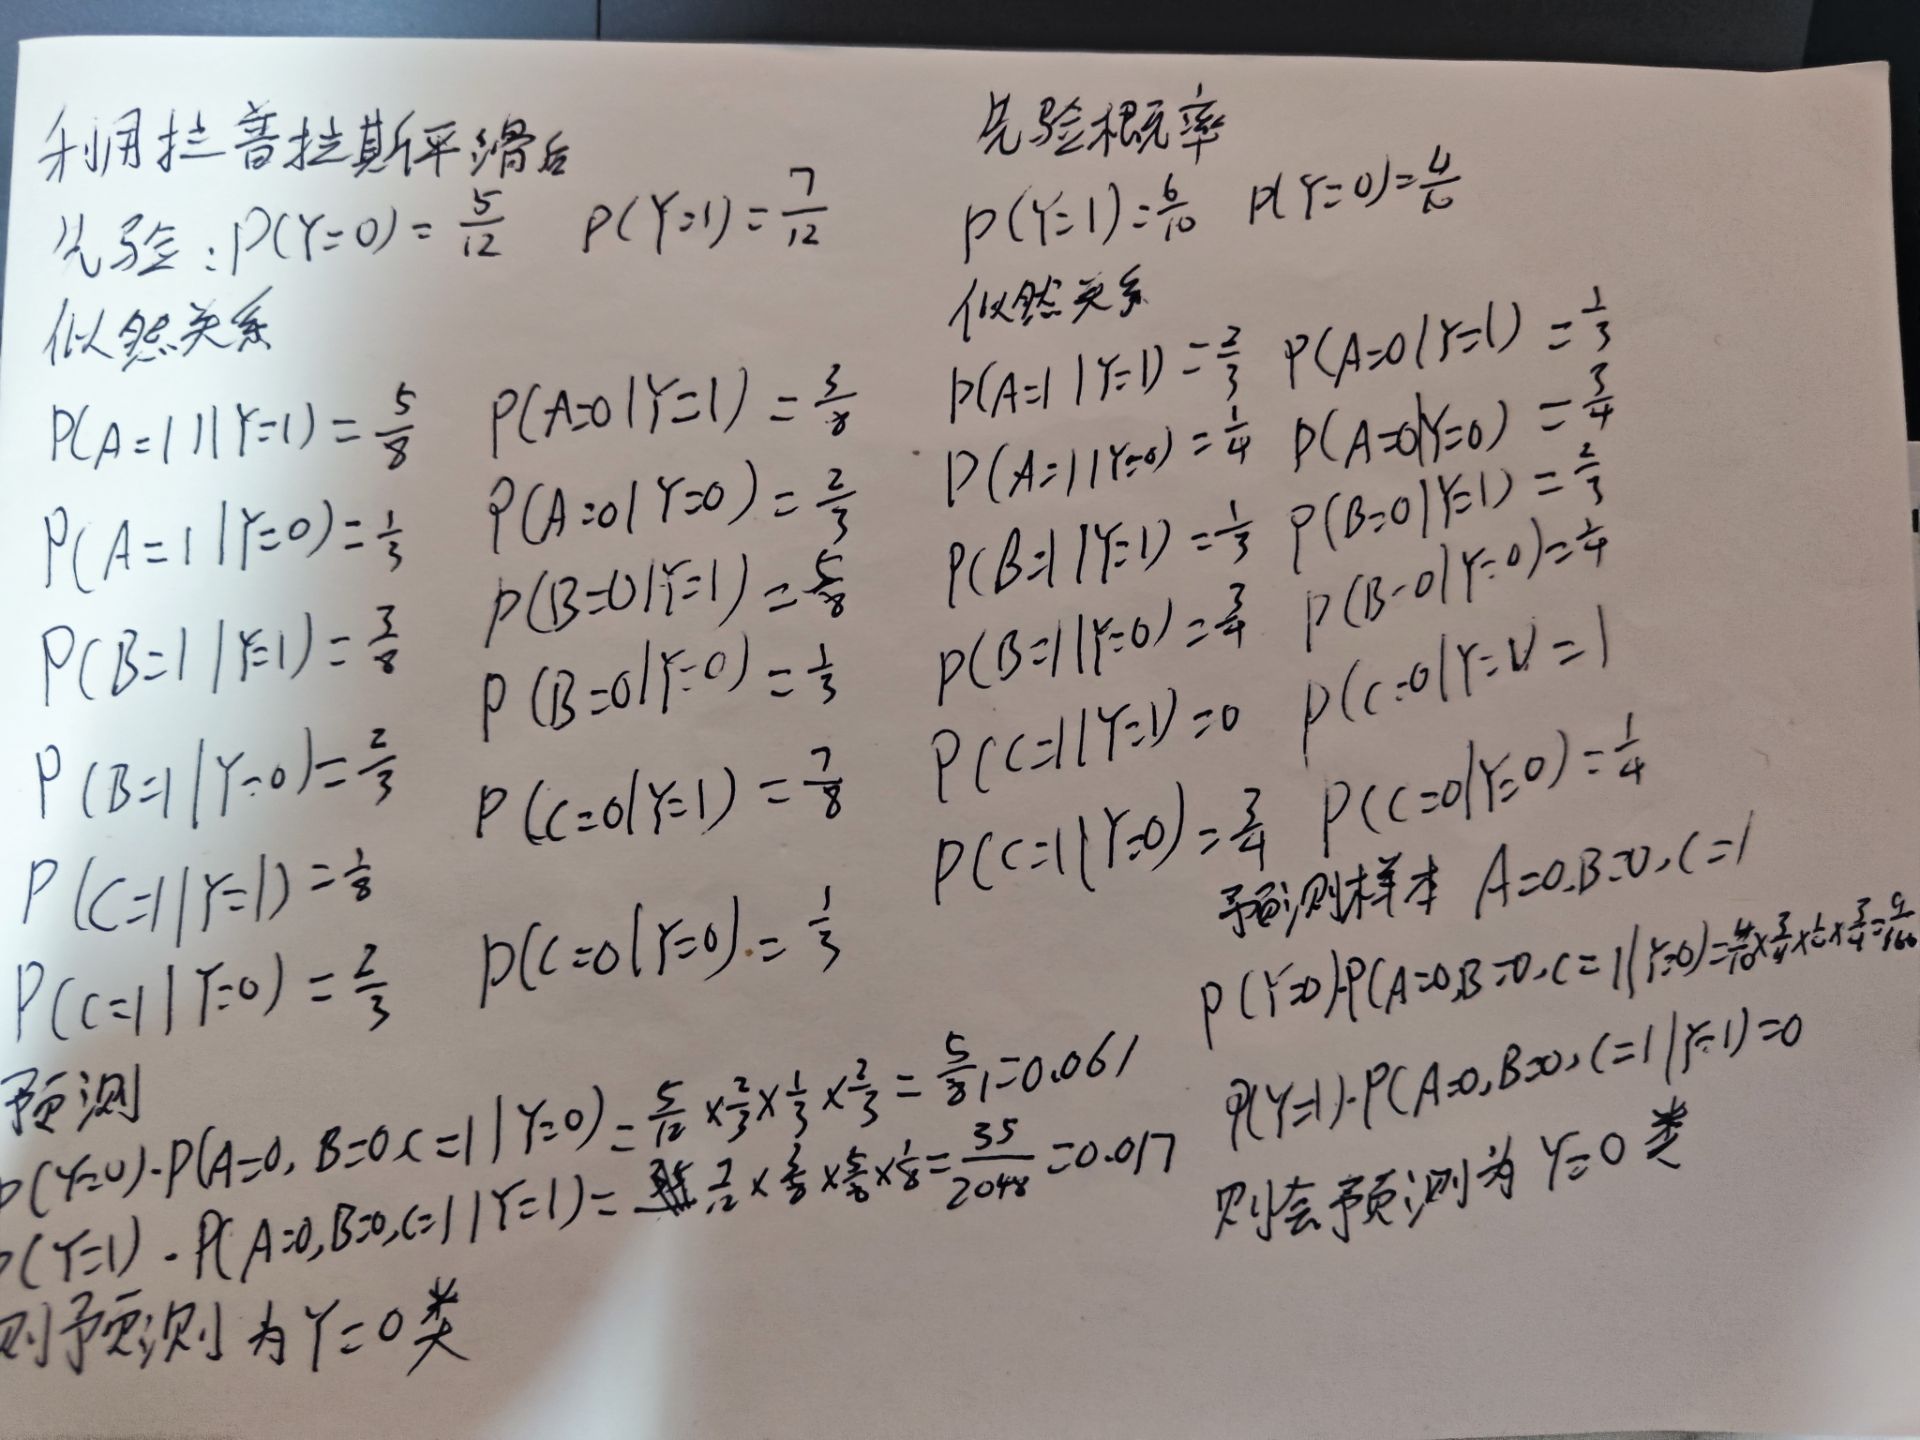 利用拉普拉斯平滑后
先验:P(Y=0)=5/12 P(Y=1)=7/12
似然关系
P(A=1|Y=1)=5/8 P(A=0|Y=1)=3/8
P(A=1|Y=0)=1/3 P(A=0|Y=0)=2/3
P(B=1|Y=1)=3/8 P(B=0|Y=1)=5/8
P(B=1|Y=0)=2/3 P(B=0|Y=0)=1/3
P(C=1|Y=1)=1/8 P(C=0|Y=1)=7/8
P(C=1|Y=0)=2/3 P(C=0|Y=0)=1/3
预测
P(Y=0)·P(A=0,B=0,C=1|Y=0)=5/12×2/3×1/3×2/3=5/81=0.061
P(Y=1)·P(A=0,B=0,C=1|Y=1)=7/12×3/8×5/8×1/8=35/2048=0.017
则预测为Y=0类
先验概率
P(Y=1)=6/10 P(Y=0)=4/10
似然关系
P(A=1|Y=1)=2/3 P(A=0|Y=1)=1/3
P(A=1|Y=0)=1/4 P(A=0|Y=0)=3/4
P(B=1|Y=1)=1/3 P(B=0|Y=1)=2/3
P(B=1|Y=0)=3/4 P(B=0|Y=0)=1/4
P(C=1|Y=1)=0 P(C=0|Y=1)=1
P(C=1|Y=0)=3/4 P(C=0|Y=0)=1/4
预测样本 A=0,B=0,C=1
P(Y=0)·P(A=0,B=0,C=1|Y=0)=4/10×3/4×1/4×3/4=9/160
P(Y=1)·P(A=0,B=0,C=1|Y=1)=0
则会预测为Y=0类